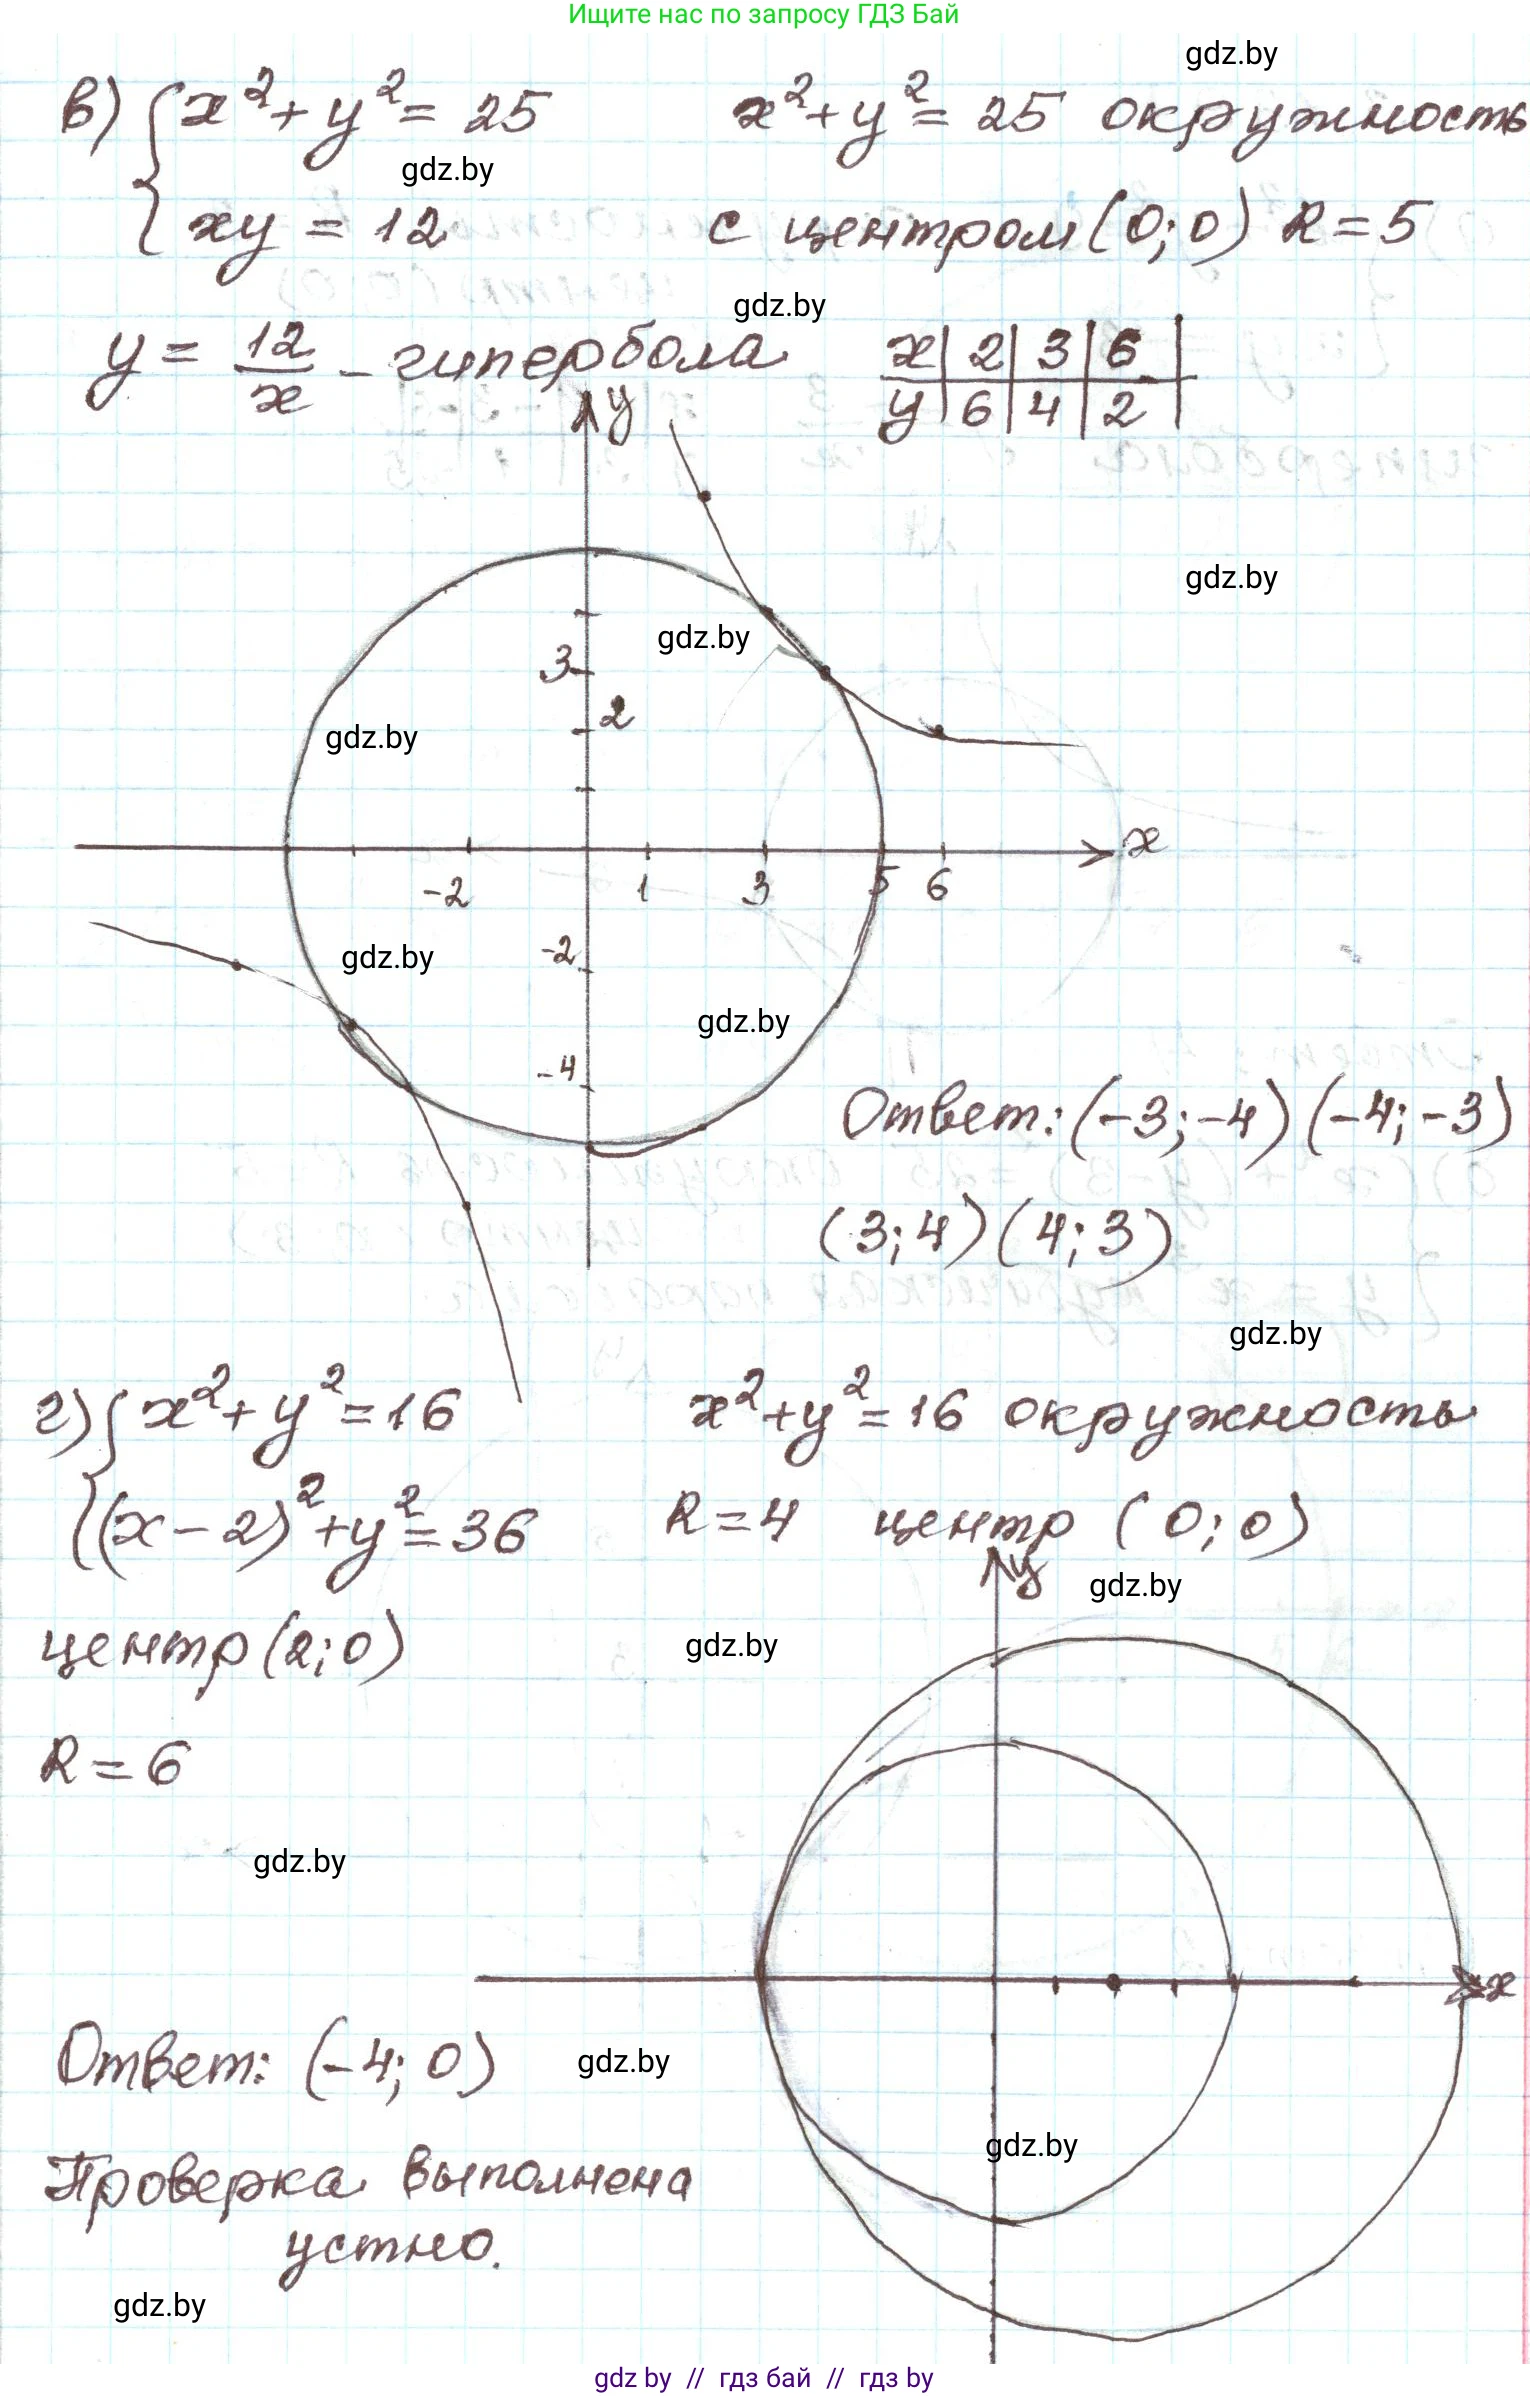 Ищите нас по запросу ГДЗ Бай
gdz.by
в) { x² + y² = 25    x² + y² = 25 окружность
gdz.by
xy = 12    с центром (0; 0) R = 5
gdz.by
y = 12/x – гипербола    x | 2 | 3 | 6 |
y | 6 | 4 | 2 |
y
gdz.by
gdz.by
3
2
gdz.by
x
-2 1 3 5 6
-2
gdz.by
gdz.by
-4
Ответ: (-3; -4) (-4; -3)
(3; 4) (4; 3)
gdz.by
г) { x² + y² = 16    x² + y² = 16 окружность
(x - 2)² + y² = 36    R = 4 центр (0; 0)
y
gdz.by
центр (2; 0)
gdz.by
R = 6
gdz.by
x
Ответ: (-4; 0)
gdz.by
gdz.by
Проверка выполнена
устно.
gdz.by
gdz by // гдз бай // гдз by